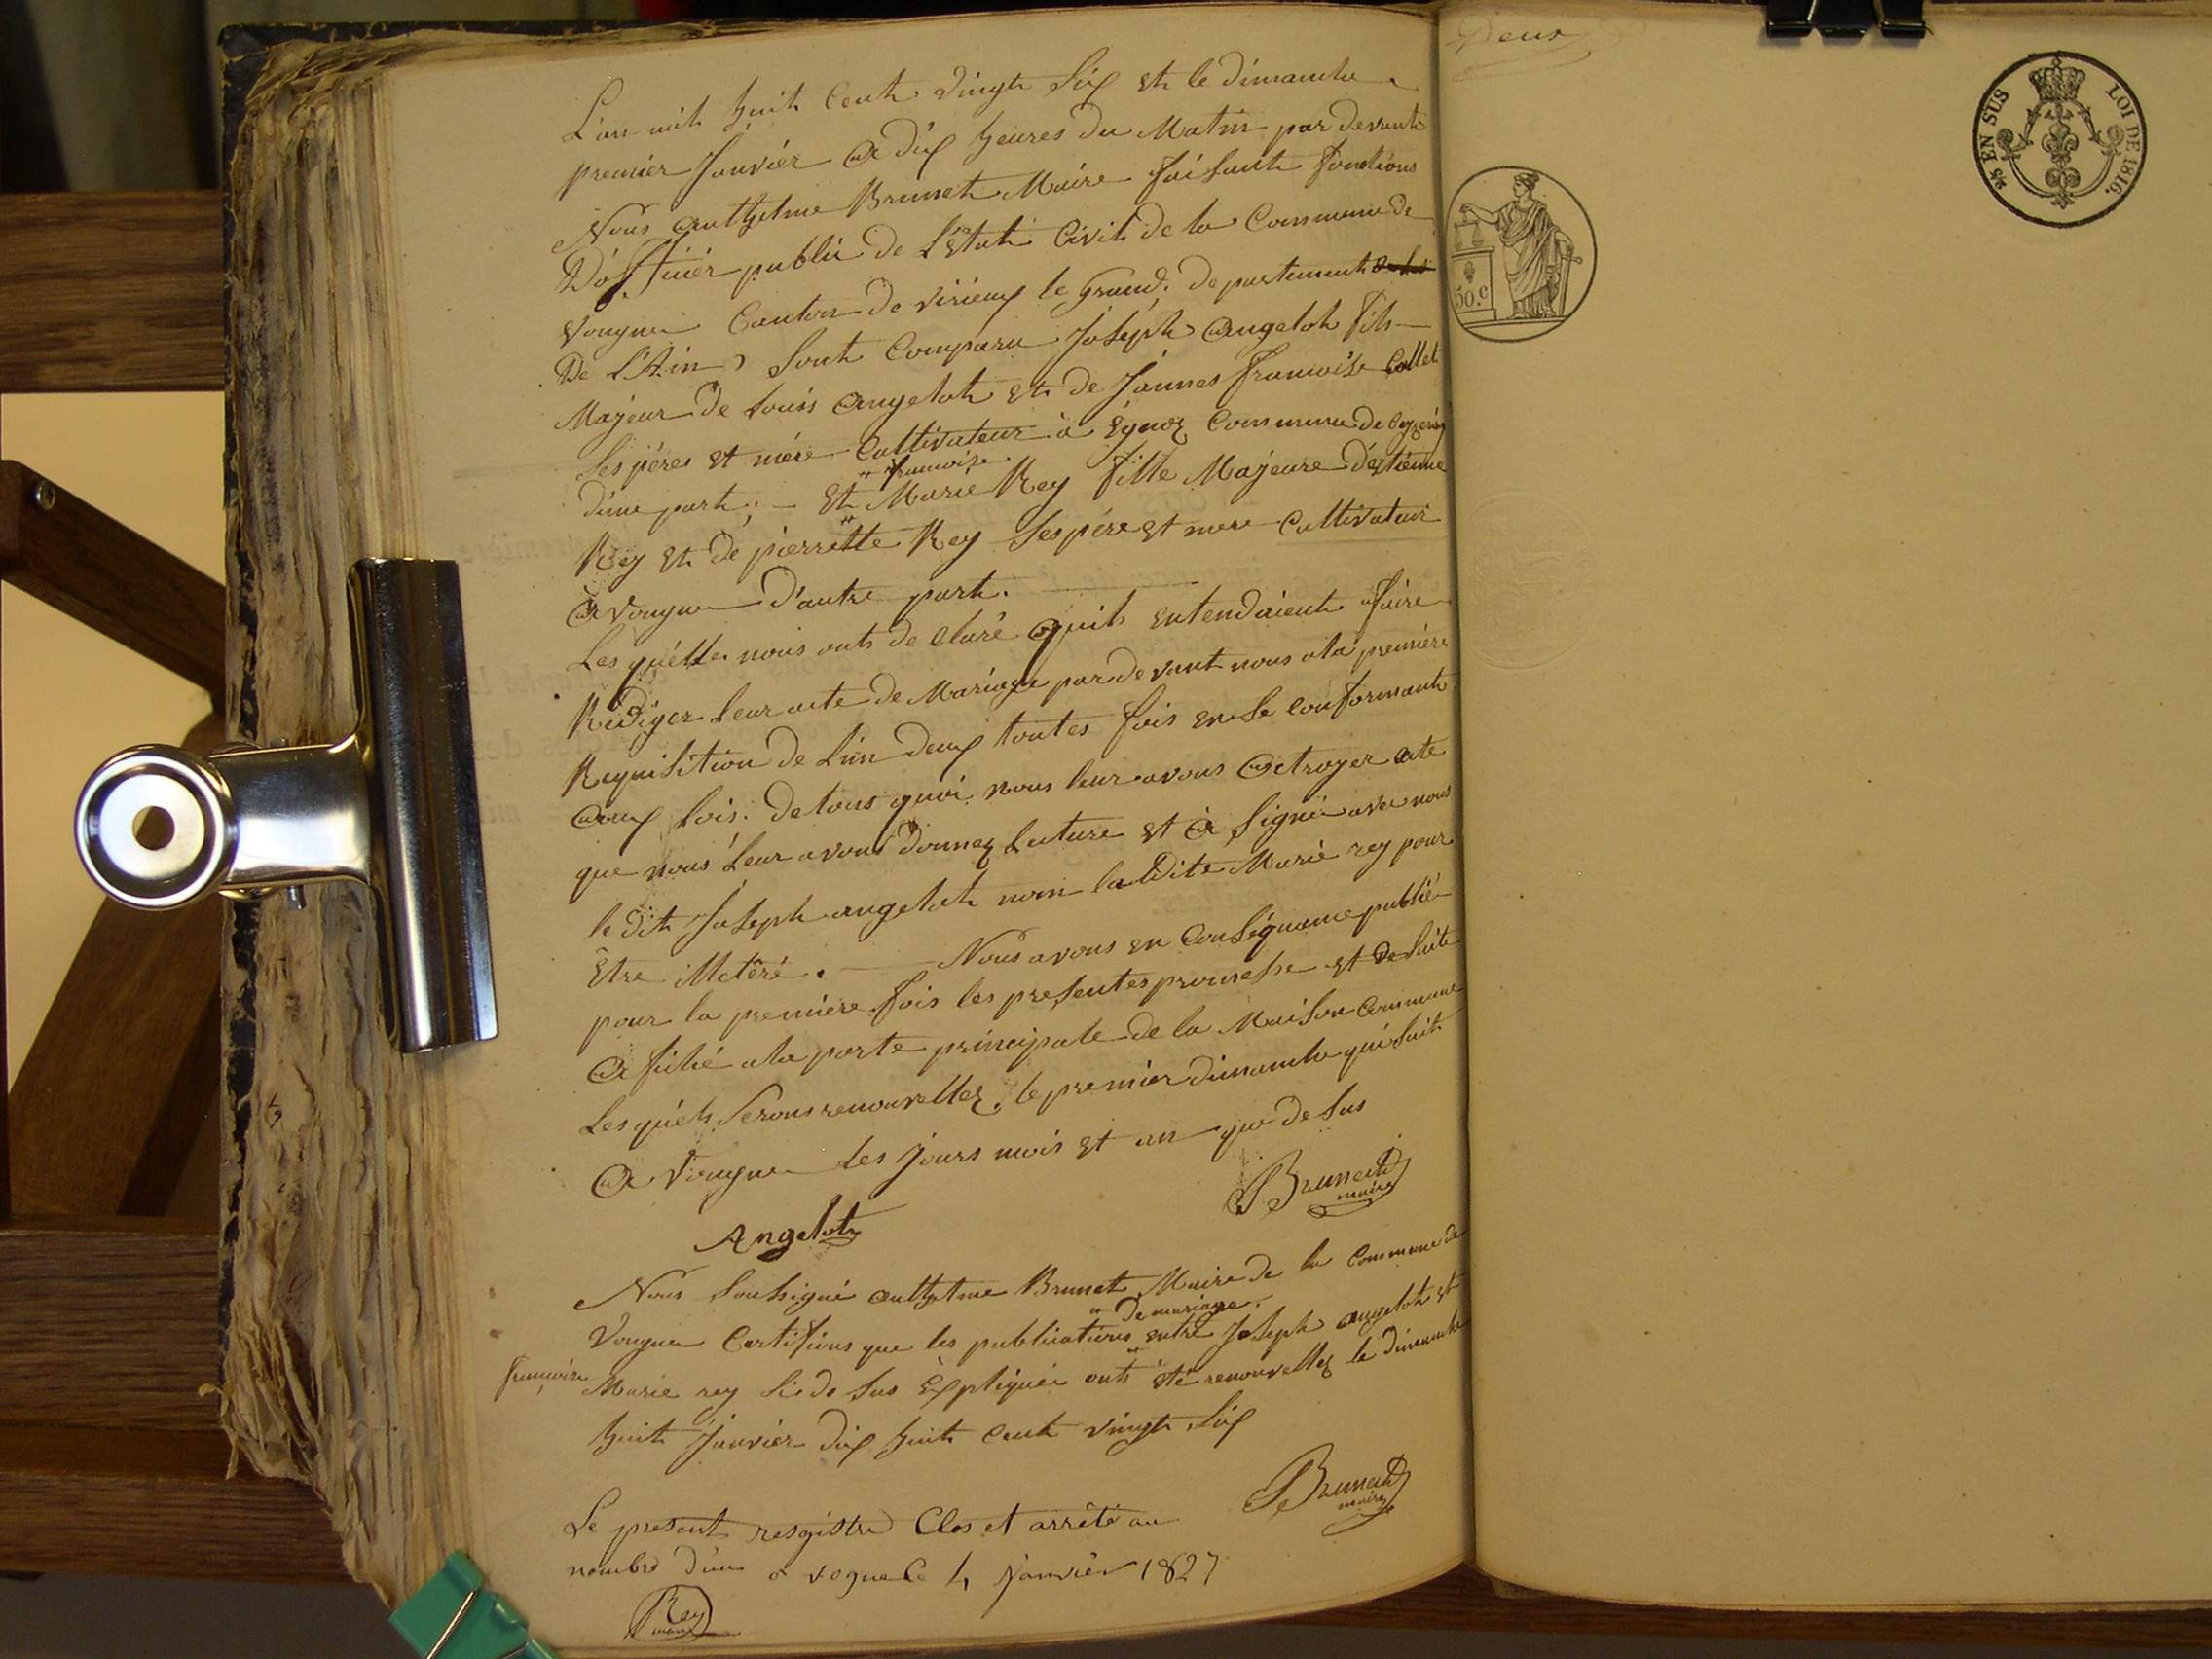 L'an mil huit Cent Vingt Six Et le dimanche
premier Janvier a dix heures du Matin par devant
Nous anthelme Brunet Maire faisant fonctions
D'officier public de L'Etat Civil de la Commune de
Vougne Canton de Virieux le grand, departement
De L'Ain, Sont Comparu Joseph Angelot fils
Majeur de Louis Angelot Et de Jannes francoise Collet
Ses péres et mére Cultivateur à Egnoz Commune de
d'une part; Et Marie " francoise Rey fille Majeure d'Etienne
Rey Et de pierrette Rey Ses pére et mere Cultivateur
a Vougne d'autre part.
Les quélles nous onts de claré quils entendaient faire
Rédiger leur acte de Mariage par devant nous ala premiére
Requisition de L'un deux toutes fois en Se Conformant
aux Lois. de tous quoi nous leur avons Octroyer acte
que nous Leur avons donnez Lecture et à Signé avec nous
le dit Joseph angelot non la dite Marie rey pour
Etre illetéré. Nous avons en Conséquance publié
pour la premiére fois les presentes promesse et de Suite
afiché ala porte principale de la Maison Commune
Les quéls Serons renouvellez le premier dimanche qui Suit
A Vougne Les jours mois et an que de Sus
Brunet
maire
Angelot
Nous Soussigné anthelme Brunet Maire de la Commune de
Vougne Certifions que les publications " De mariage entre Joseph angelot et
francoise Marie rey Si de Sus Expliquée onts été renouvellez le dimanche
huit Janvier dix huit Cent vingt Six
Brunet
maire
Le present resgistre Clos et arrêté au
nombre d'un a vogne le 4 janvier 1827
Rey
maire
Deux
25 EN SUS
LOI DE 1816.
50.C